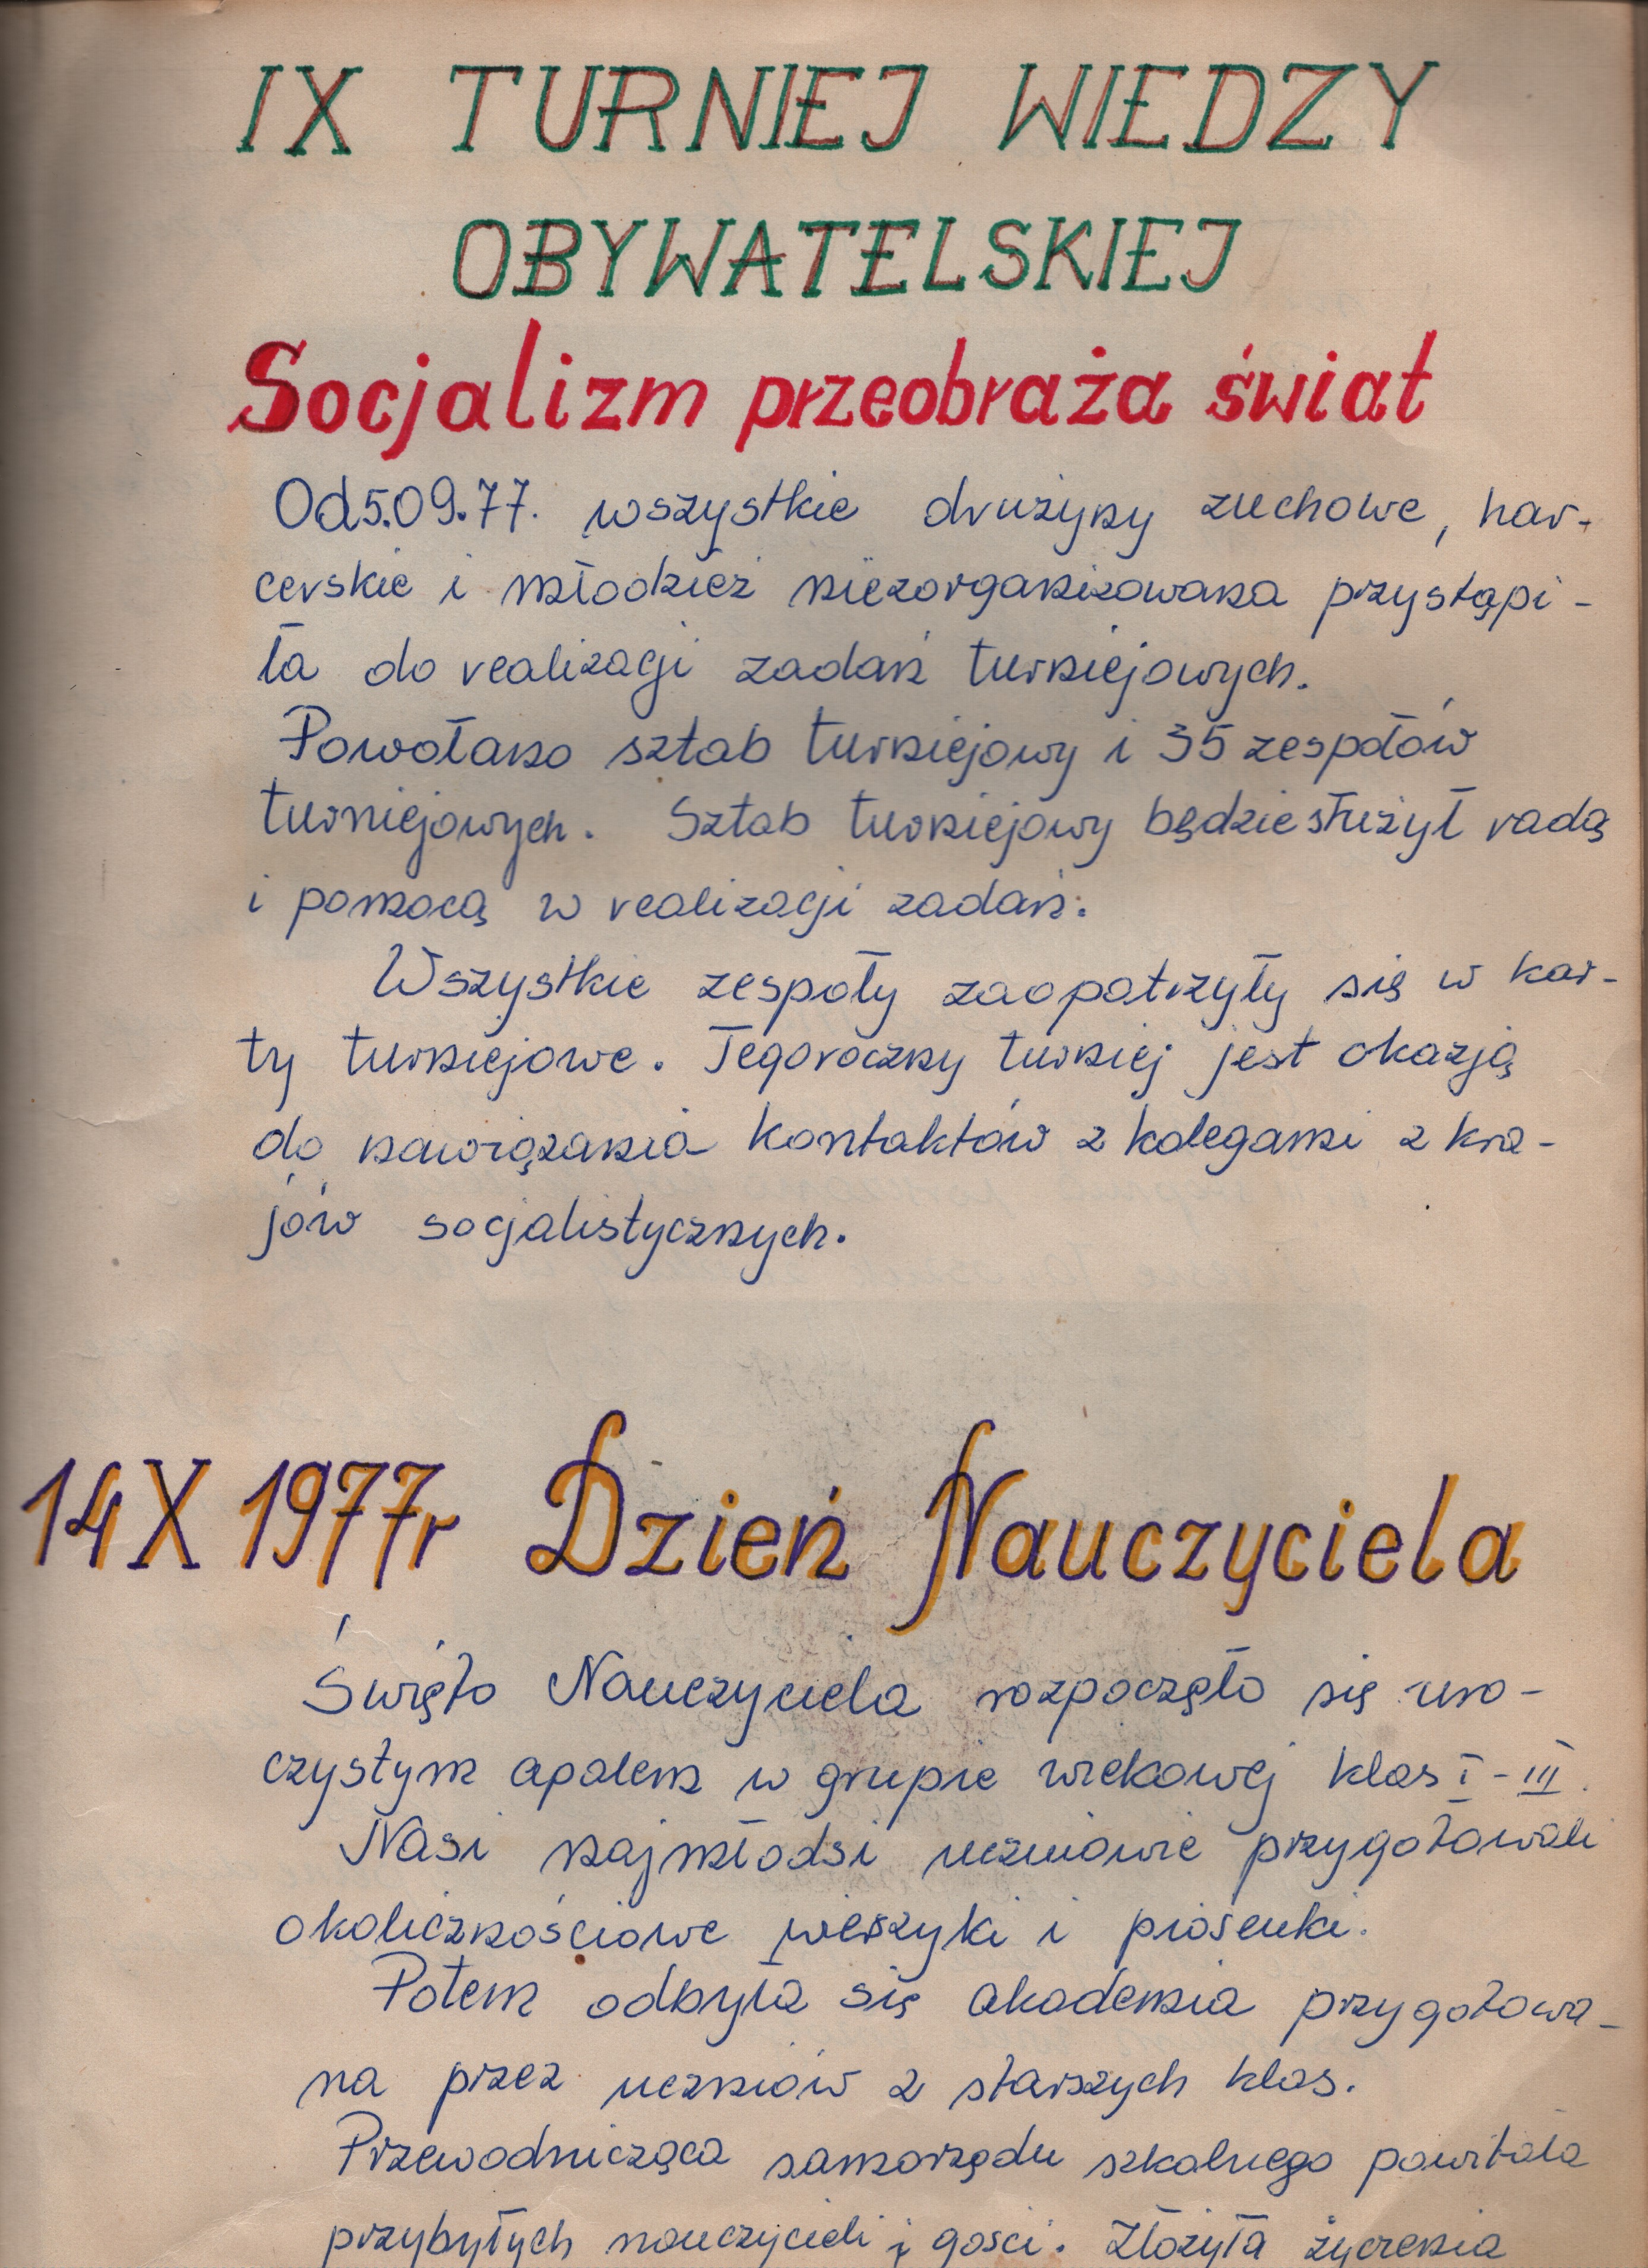 IX TURNIEJ WIEDZY
OBYWATELSKIEJ
Socjalizm przeobraża świat
Od 5.09.77. wszystkie drużyny zuchowe, har-
cerskie i młodzież niezorganizowana przystąpi-
ła do realizacji zadań turniejowych.
Powołano sztab turniejowy i 35 zespołów
turniejowych. Sztab turniejowy będzie służył radą
i pomocą w realizacji zadań.
Wszystkie zespoły zaopatrzyły się w kar-
ty turniejowe. Tegoroczny turniej jest okazją
do nawiązania kontaktów z kolegami z kra-
jów socjalistycznych.
14 X 1977r Dzień Nauczyciela
Święto Nauczyciela rozpoczęło się uro-
czystym apelem w grupie wiekowej klas I-III.
Nasi najmłodsi uczniowie przygotowali
okolicznościowe wierszyki i piosenki.
Potem odbyła się akademia przygotowa-
na przez uczniów z starszych klas.
Przewodnicząca samorządu szkolnego powitała
przybyłych nauczycieli i gości. Złożyła życzenia